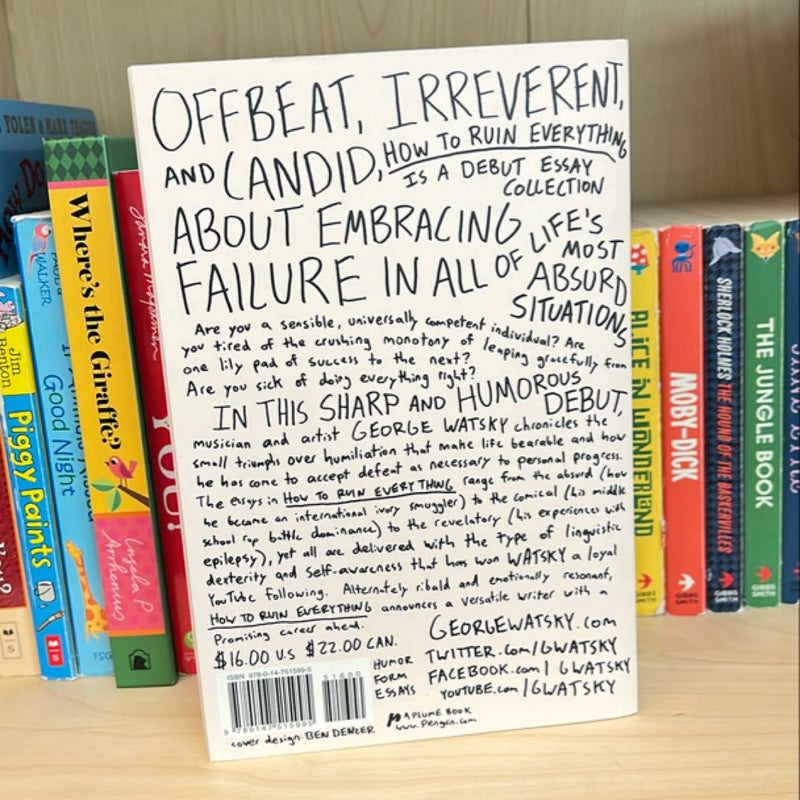 OFFBEAT, IRREVERENT,
AND CANDID, HOW TO RUIN EVERYTHING
IS A DEBUT ESSAY
COLLECTION
ABOUT EMBRACING
FAILURE IN ALL OF LIFE'S
MOST
ABSURD
SITUATIONS
Are you a sensible, universally competent individual? Are
you tired of the crushing monotony of leaping gracefully from
one lily pad of success to the next?
Are you sick of doing everything right?
IN THIS SHARP AND HUMOROUS
DEBUT,
musician and artist GEORGE WATSKY chronicles the
small triumphs over humiliation that make life bearable and how
he has come to accept defeat as necessary to personal progress.
The essays in HOW TO RUIN EVERYTHING range from the absurd (how
he became an international ivory smuggler) to the comical (his middle
school rap battle dominance) to the revelatory (his experiences with
epilepsy), yet all are delivered with the type of linguistic
dexterity and self-awareness that has won WATSKY a loyal
YouTube following. Alternately ribald and emotionally resonant,
HOW TO RUIN EVERYTHING announces a versatile writer with a
Promising career ahead.
$16.00 U.S $22.00 CAN.
HUMOR
FORM
ESSAYS
GEORGEWATSKY.com
TWITTER.com/GWATSKY
FACEBOOK.com/GWATSKY
YOUTUBE.com/GWATSKY
ISBN 978-0-14-751599-5
51600
9 780147 515995
cover design: BEN DENZER
A PLUME BOOK
www.Penguin.com
YOLEN & MARK
How Do
WALKER
Good Night
Jim Benton
Piggy Paints
Where's the Giraffe?
Ingela P Arrhenius
YOU!
ALICE IN WONDERLAND
GIBBS SMITH
MOBY-DICK
GIBBS SMITH
SHERLOCK HOLMES THE HOUND OF THE BASKERVILLES
GIBBS SMITH
THE JUNGLE BOOK
GIBBS SMITH